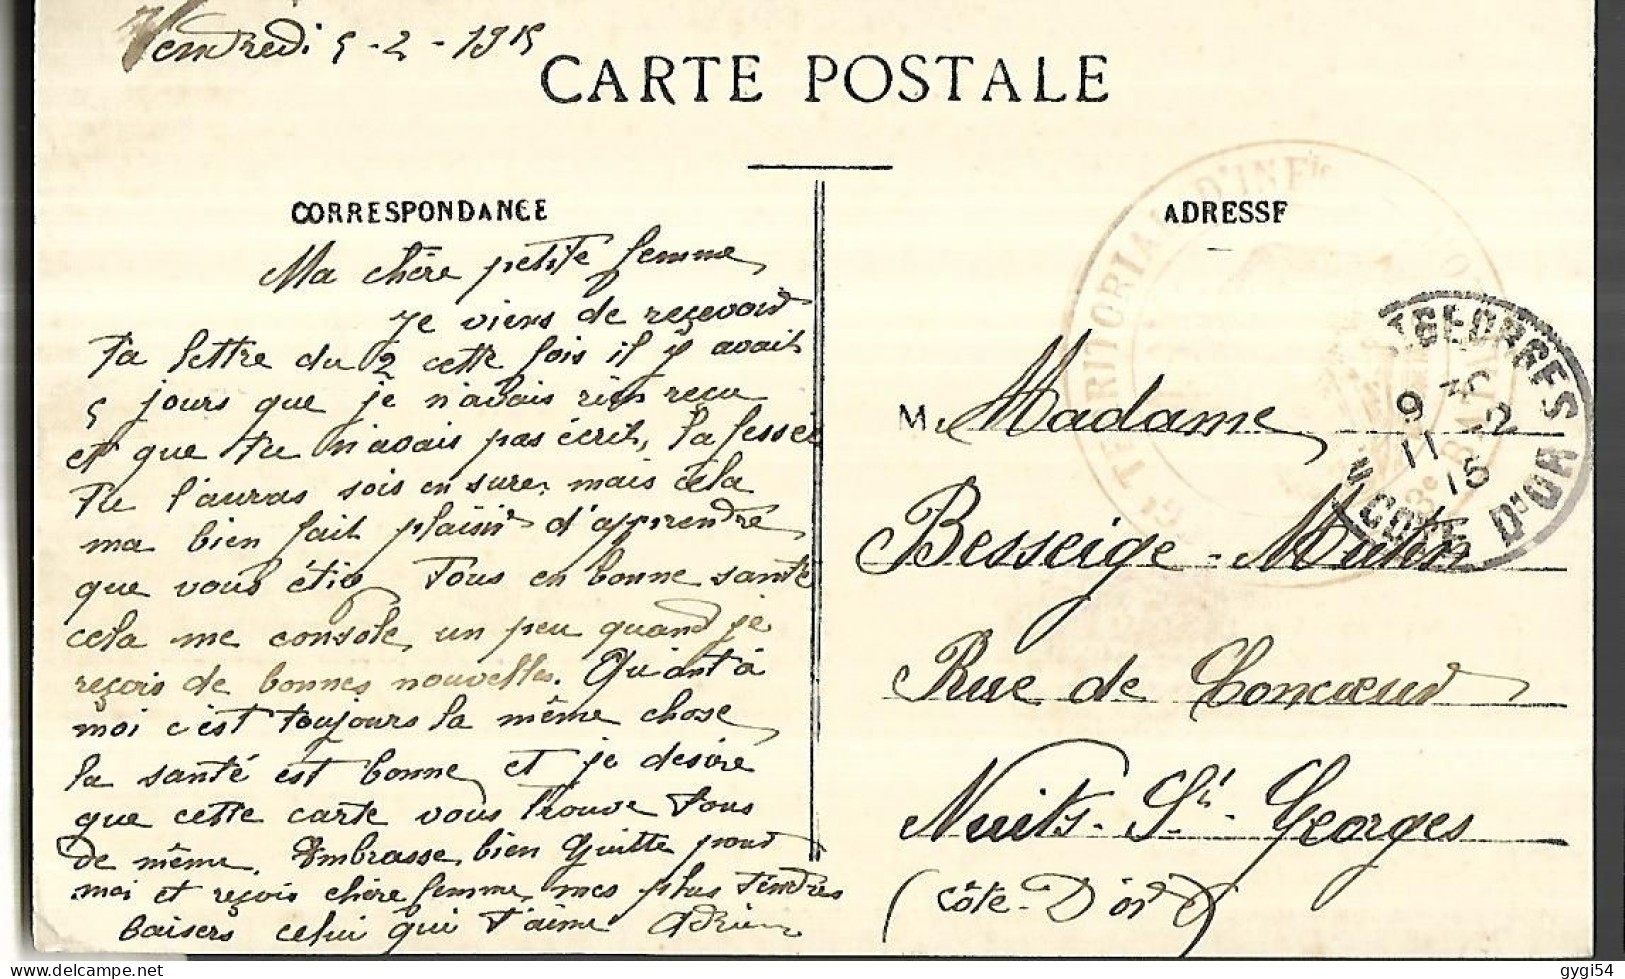 Vendredi 5-2-1915
CARTE POSTALE
CORRESPONDANCE
Ma chère petite femme
Je viens de reçevoir
ta lettre du 2 cette fois il y avait
5 jours que je n'avais rien reçu
et que tu n'avais pas écrit, la fessée
tu l'auras sois en sure, mais cela
ma bien fait plaisir d'apprendre
que vous étie tous en bonne santé
cela me console un peu quand je
reçois de bonnes nouvelles. Quant à
moi c'est toujours la même chose
la santé est bonne et je desire
que cette carte vous trouve tous
de même. Embrasse bien Guitte pour
moi et reçois chère femme mes plus tendres
baisers celui qui t'aime Adrien
ADRESSE
TERRITORIAL D'INFie
3e B
M. Madame
Besseige-Mutin
Rue de Concœur
Nuits-St-Georges
(Côte-D'or)
GEORGES
9 30
11 2
15
COTE D'OR
gygi54